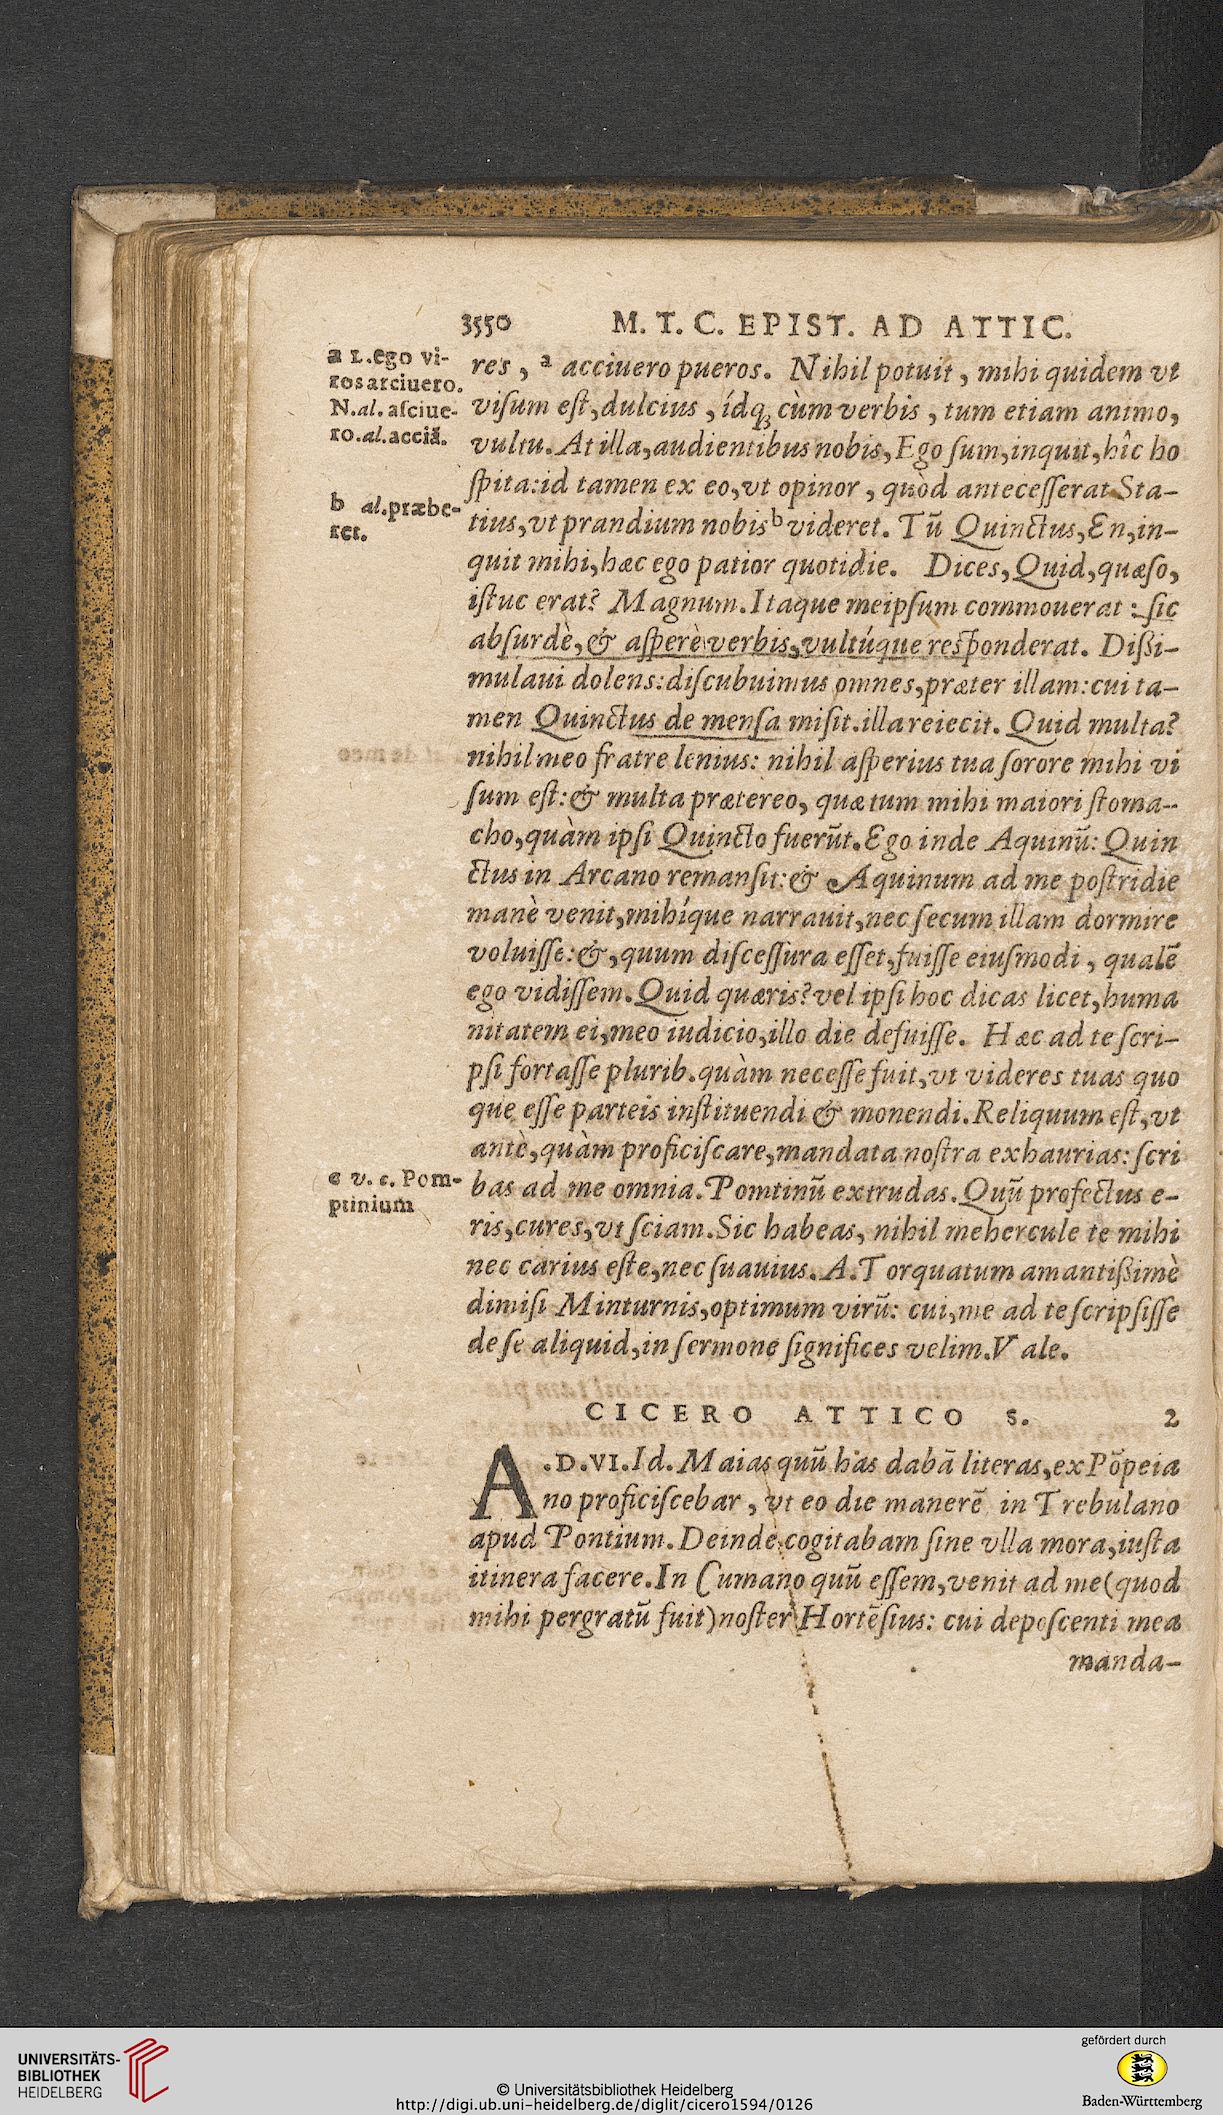 3550 M. T. C. EPIST. AD ATTIC.
a L. ego vi-
ros arciuero.
N. al. asciue-
ro. al. acciã.
b al. præbe-
ret.
c v. c. Pom-
ptinium
res, ᵃ acciuero pueros. Nihil potuit, mihi quidem vt
visum est, dulcius, ídq; cùm verbis, tum etiam animo,
vultu. At illa, audientibus nobis, Ego sum, inquit, hîc ho
spita: id tamen ex eo, vt opinor, quòd antecesserat Sta-
tius, vt prandium nobis ᵇ videret. Tũ Quinctus, En, in-
quit mihi, hæc ego patior quotidie. Dices, Quid, quæso,
istuc erat? Magnum. Itaque meipsum commouerat: sic
absurdè, & asperè verbis, vultúque responderat. Dißi-
mulaui dolens: discubuimus omnes, præter illam: cui ta-
men Quinctus de mensa misit. illa reiecit. Quid multa?
nihil meo fratre lenius: nihil asperius tua sorore mihi vi
sum est: & multa prætereo, quæ tum mihi maiori stoma-
cho, quàm ipsi Quincto fuerũt. Ego inde Aquinũ: Quin
ctus in Arcano remansit: & Aquinum ad me postridie
manè venit, mihíque narrauit, nec secum illam dormire
voluisse: &, quum discessura esset, fuisse eiusmodi, qualẽ
ego vidissem. Quid quæris? vel ipsi hoc dicas licet, huma
nitatem ei, meo iudicio, illo die defuisse. Hæc ad te scri-
psi fortasse plurib. quàm necesse fuit, vt videres tuas quo
que esse parteis instituendi & monendi. Reliquum est, vt
antè, quàm proficiscare, mandata nostra exhaurias: scri
bas ad me omnia. Pomtinũ extrudas. Quũ profectus e-
ris, cures, vt sciam. Sic habeas, nihil mehercule te mihi
nec carius este, nec suauius. A. Torquatum amantißimè
dimisi Minturnis, optimum virũ: cui, me ad te scripsisse
de se aliquid, in sermone significes velim. Vale.
CICERO ATTICO S. 2
A. D. VI. Id. Maias quũ has dabã literas, ex Põpeia
no proficiscebar, vt eo die manerẽ in Trebulano
apud Pontium. Deinde cogitabam sine vlla mora, iusta
itinera facere. In Cumano quũ essem, venit ad me (quod
mihi pergratũ fuit) noster Hortẽsius: cui deposcenti mea
manda-
UNIVERSITÄTS-
BIBLIOTHEK
HEIDELBERG
© Universitätsbibliothek Heidelberg
http://digi.ub.uni-heidelberg.de/diglit/cicero1594/0126
gefördert durch
Baden-Württemberg